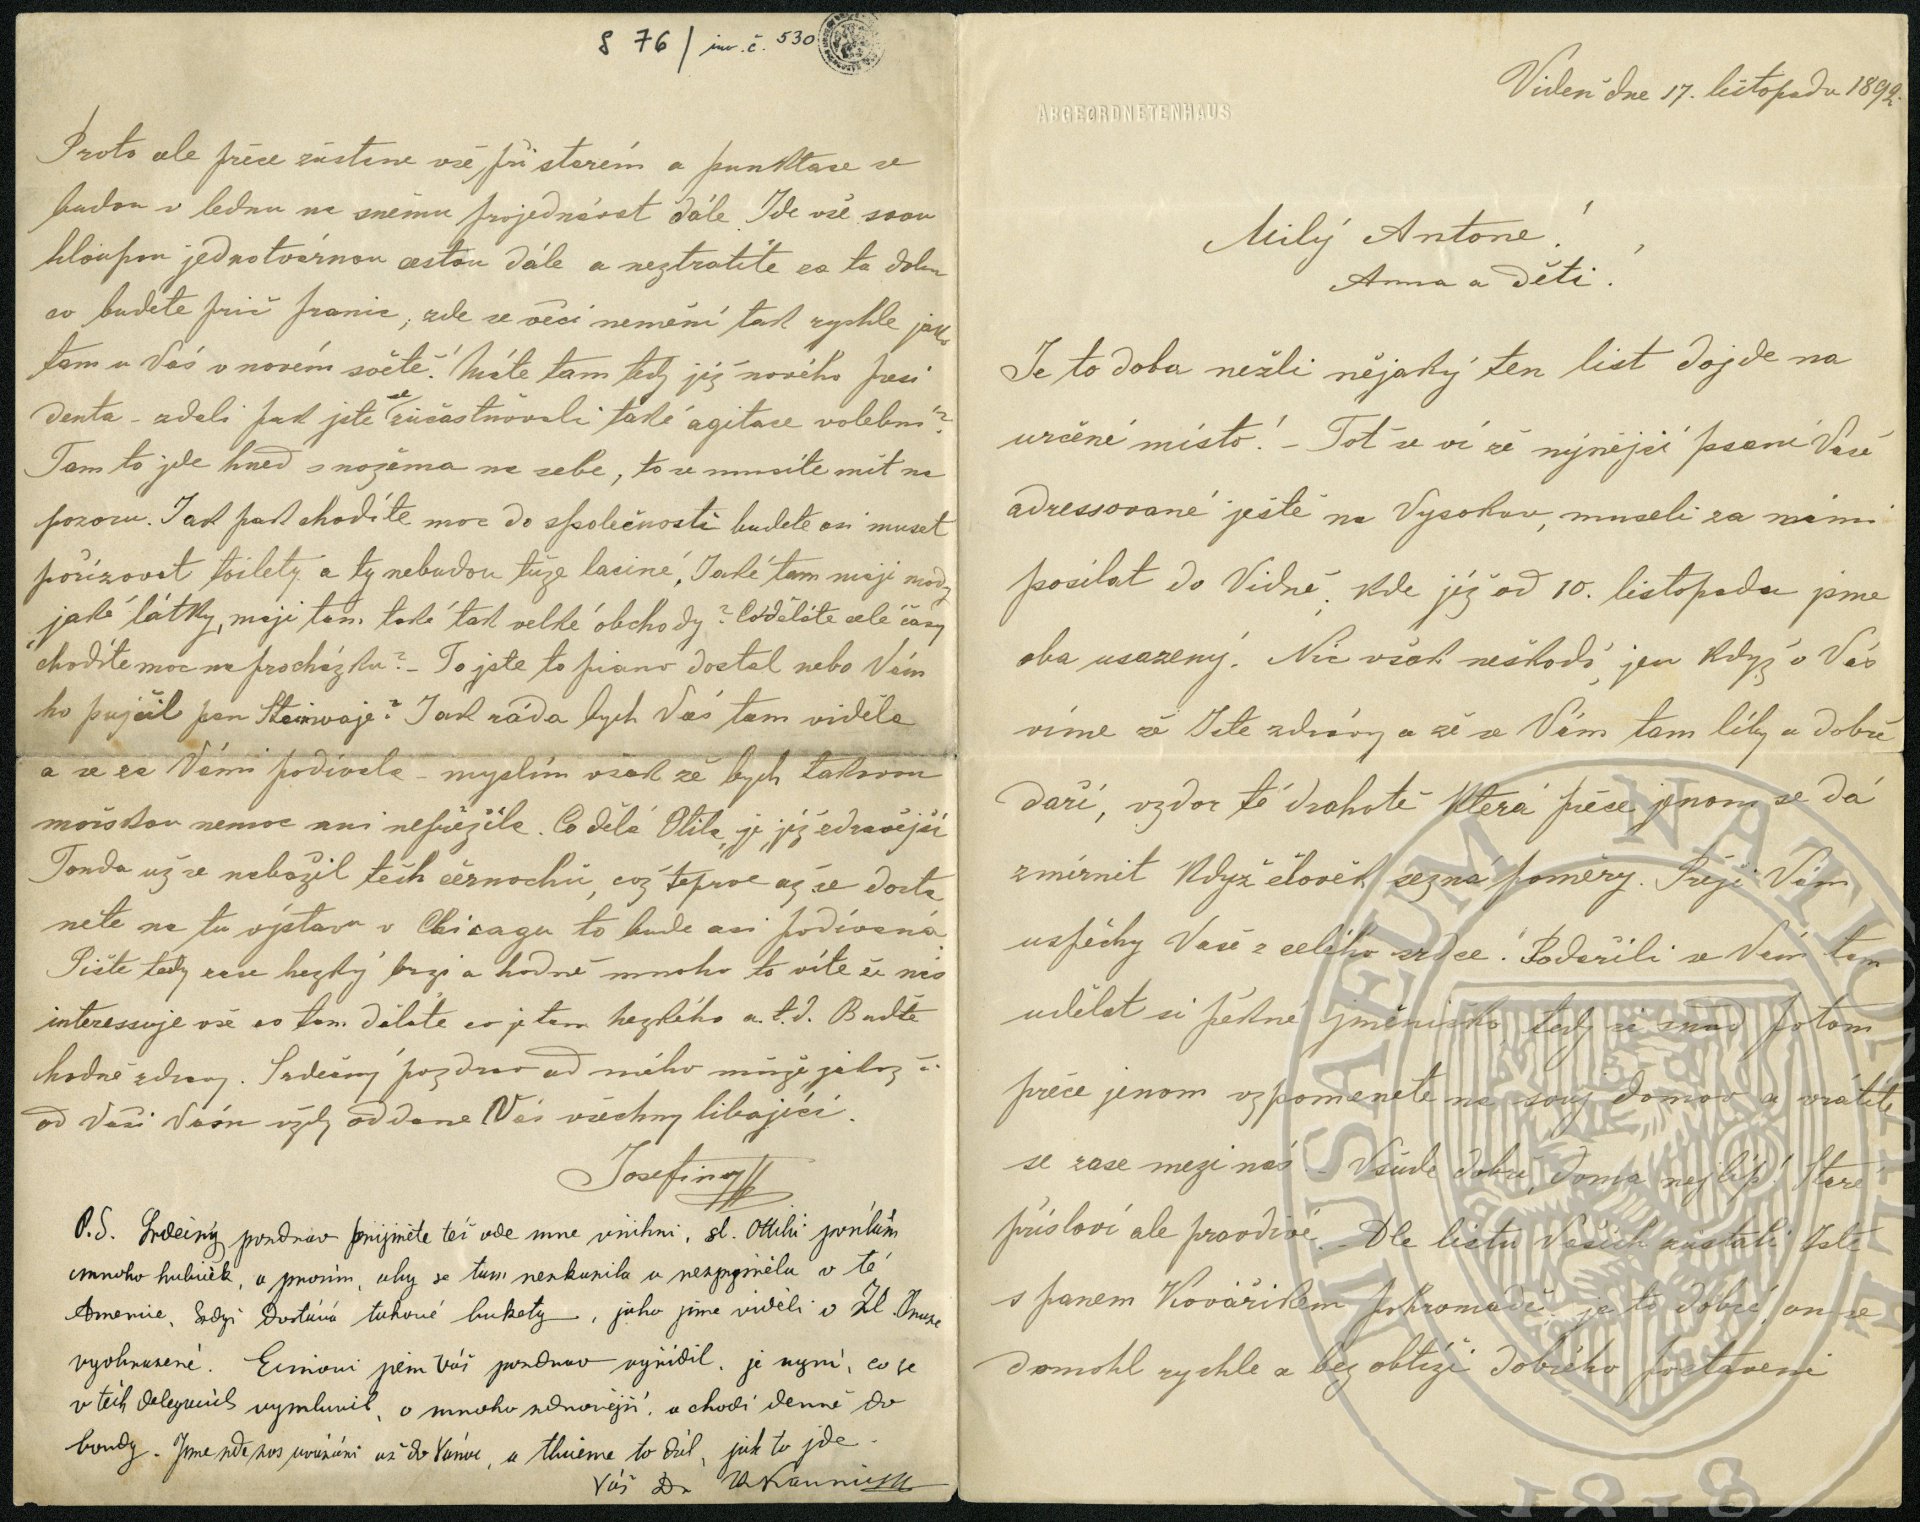 Vídeň dne 17. listopadu 1892.
ABGEORDNETENHAUS
Milý Antone!
Anna a děti!
Je to doba nežli nějaký ten list dojde na
určené místo! – Toť se ví že nynější psaní Vaše
adressované ještě na Vysokou, museli za námi
posílat do Vídně, kde jíž od 10. listopadu jsme
oba usazený. Nic však neškodí, jen když o Vás
víme že Jste zdrávy a že se Vám tam líby a dobře
daří, vzdor té drahotě která přece jenom se dá
zmírnit když člověk sezná poměry. Přeji Vám
uspěchy Vaše z celého srdce! Podařili se Vám tam
udělat si pěkné jměníčko tedy si snad potom
přece jenom vzpomenete na svůj domov a vrátíte
se zase mezi nás – Všude dobře, doma nejlíp! Staré
přísloví ale pravdivé. – Dle listu Vašich zůstali Jste
s panem Kovaříkem pohromadě; je to dobré, on se
domohl rychle a bez obtíží dobrého postavení
S 76 / inv. č. 530
Proto ale přece zůstane vše při starém a punktace se
budou v lednu na sněmu projednávat dále. Jde vše svou
hloupou jednotvárnou cestou dále a neztratíte za ta dobu
co budete prič pranic, zde se věci nemění tak rychle jako
tam u Vás v novém světě! Máte tam tedy jíž nového presi
denta – zdali pak jste se zúčastňovali také agitace volební?
Tam to jde hned s nožema na sebe, to se musíte mít na
pozoru. Jak pak chodíte moc do společnosti budete asi muset
pořizovat toilety a ty nebudou tuze laciné, Jaké tam mají mody
jaké látky, mají tam také tak velké obchody? Co děláte celé časy
chodíte moc na procházku? – To jste to piano dostal nebo Vám
ho pujčil pan Steinwaje? Jak ráda bych Vás tam viděla
a se za Vámi podívala – myslím však že bych takovou
mořskou nemoc ani nepřežila. Co dělá Otila, je jíž zdravější
Tonda už se nabažil těch černochů, což teprve až se dosta
nete na tu výstavu v Chicagu to bude asi podívaná
Pište tedy zase hezký brzi a hodně mnoho to víte že nás
interessuje vše co tam děláte co je tam hezkého a.t.d. Buďte
hodně zdravy. Srdečný pozdrav od mého muže jakož i
od Vaší Vám vždy oddané Vás všechny líbající.
Josefiny
P.S. Srdečný pozdrav přijměte též ode mne všichni, sl. Ottilii posílám
mnoho hubiček, a prosím, aby se tam nezkazila a nezpyšněla v té
Americe, když dostává takové bukety, jako jsme viděli v Zl. Praze
vyobrazené. Váš pozdrav vyřídil, je nyní, co se
v těch delegacích vymluvil, o mnoho zdravější, a chodí denně do
boudy. Jsme zde zas uvázáni až do Vánoc, a tlučeme to dál, jak to jde.
Váš Dr. V. Kaunic
MUSAEUM NATIONALE
1818